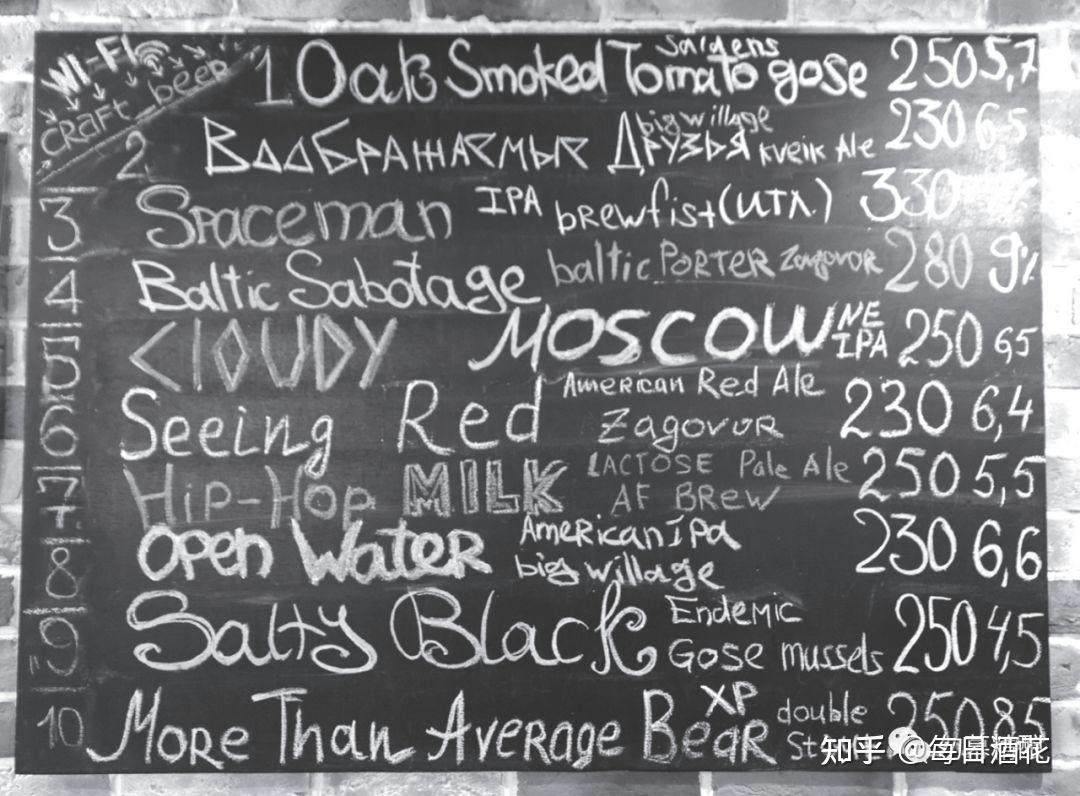 WI-FI
CRAFT beer
1 Oak Smoked Tomato gose Saldens 250 5,7
2 Воображаемые Друзья big willage kveik Ale 230 6,5
3 Spaceman IPA brewfist (ИТЛ.) 330
4 Baltic Sabotage baltic PORTER Zagovor 280 9%
5 CLOUDY MOSCOW NE IPA 250 65
6 Seeing Red American Red Ale Zagovor 230 6,4
7 Hip-Hop MILK LACTOSE Pale Ale AF BREW 250 5,5
8 Open Water American Ipa big willage 230 6,6
9 Salty Black Endemic Gose mussels 250 4,5
10 More Than Average Bear XP double 250 8,5
知乎 @每日酒花